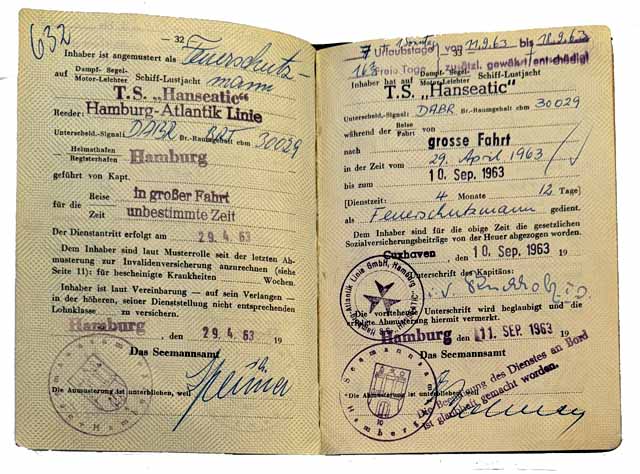 632
— 32
Inhaber ist angemustert als Feuerschutz-
auf Dampf- Segel- Motor-Leichter Schiff-Lustjacht mann
T.S. „Hanseatic"
Reeder: Hamburg-Atlantik Linie
Unterscheid.-Signal: DABR BRT-Raumgehalt cbm 30029
Heimathafen
Registerhafen Hamburg
geführt von Kapt.
für die Reise in großer Fahrt
Zeit unbestimmte Zeit
Der Dienstantritt erfolgt am 29. 4. 63
Dem Inhaber sind laut Musterrolle seit der letzten Ab-
musterung zur Invalidenversicherung anzurechnen (siehe
Seite 11): für bescheinigte Krankheiten Wochen.
Inhaber ist laut Vereinbarung — auf sein Verlangen —
in der höheren, seiner Dienststellung nicht entsprechenden
Lohnklasse zu versichern.
Hamburg, den 29. 4. 63 19
Das Seemannsamt
Die Ausmusterung ist unterblieben, weil
Seemannsamt Hamburg
7 Urlaubstage von 11.9.63 bis 18.9.63
16⅔ Freie Tage zusätzl. gewährt/entschädigt
33
Inhaber hat auf Dampf- Segel- Motor-Leichter Schiff-Lustjacht
T.S. „Hanseatic"
Unterscheid.-Signal: DABR Br.-Raumgehalt cbm 30029
während der Reise Fahrt von
nach grosse Fahrt
in der Zeit vom 29. April 1963
bis zum 10. Sep. 1963
[Dienstzeit: 4 Monate 12 Tage]
als Feuerschutzmann gedient.
Dem Inhaber sind für die obige Zeit die gesetzlichen
Sozialversicherungsbeiträge von der Heuer abgezogen worden.
Cuxhaven, den 10. Sep. 1963 19
Unterschrift des Kapitäns:
Atlantik Linie GmbH, Hamburg
T.S. „HANSEATIC"
Die vorstehende Unterschrift wird beglaubigt und die
erfolgte Abmusterung hiermit vermerkt.
Hamburg, den 11. SEP. 1963 19
Das Seemannsamt
Die Beendigung des Dienstes an Bord
ist glaubhaft gemacht worden.
Die Abmusterung ist unterblieben, weil
Seemannsamt Hamburg
10